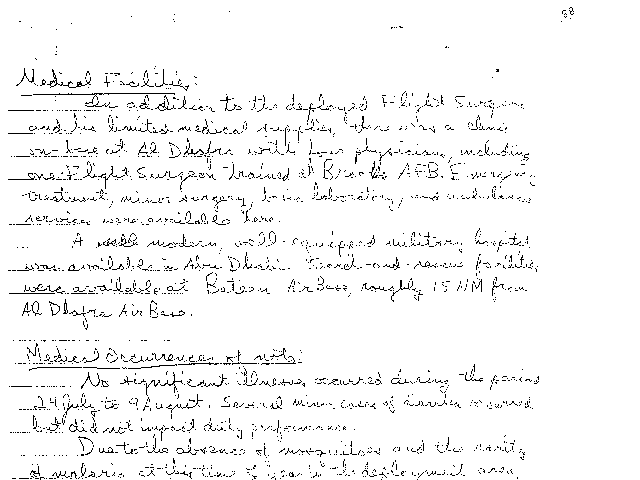 58
Medical Facilities:
In addition to the deployed Flight Surgeon
and his limited medical supplies, there was a clinic
on-base at Al Dhafra with four physicians, including
one Flight Surgeon trained at Brooks AFB. Emergency
treatment, minor surgery, basic laboratory, and ambulance
services were available here.
A modern, well-equipped military hospital
was available in Abu Dhabi. Search-and-rescue facilities
were available at Bateen Air Base, roughly 15 NM from
Al Dhafra Air Base.
Medical Occurrences of note:
No significant illnesses occurred during the period
24 July to 9 August. Several minor cases of diarrhea occurred
but did not impact duty performance.
Due to the absence of mosquitoes and the rarity
of malaria at this time of year in the deployment area,